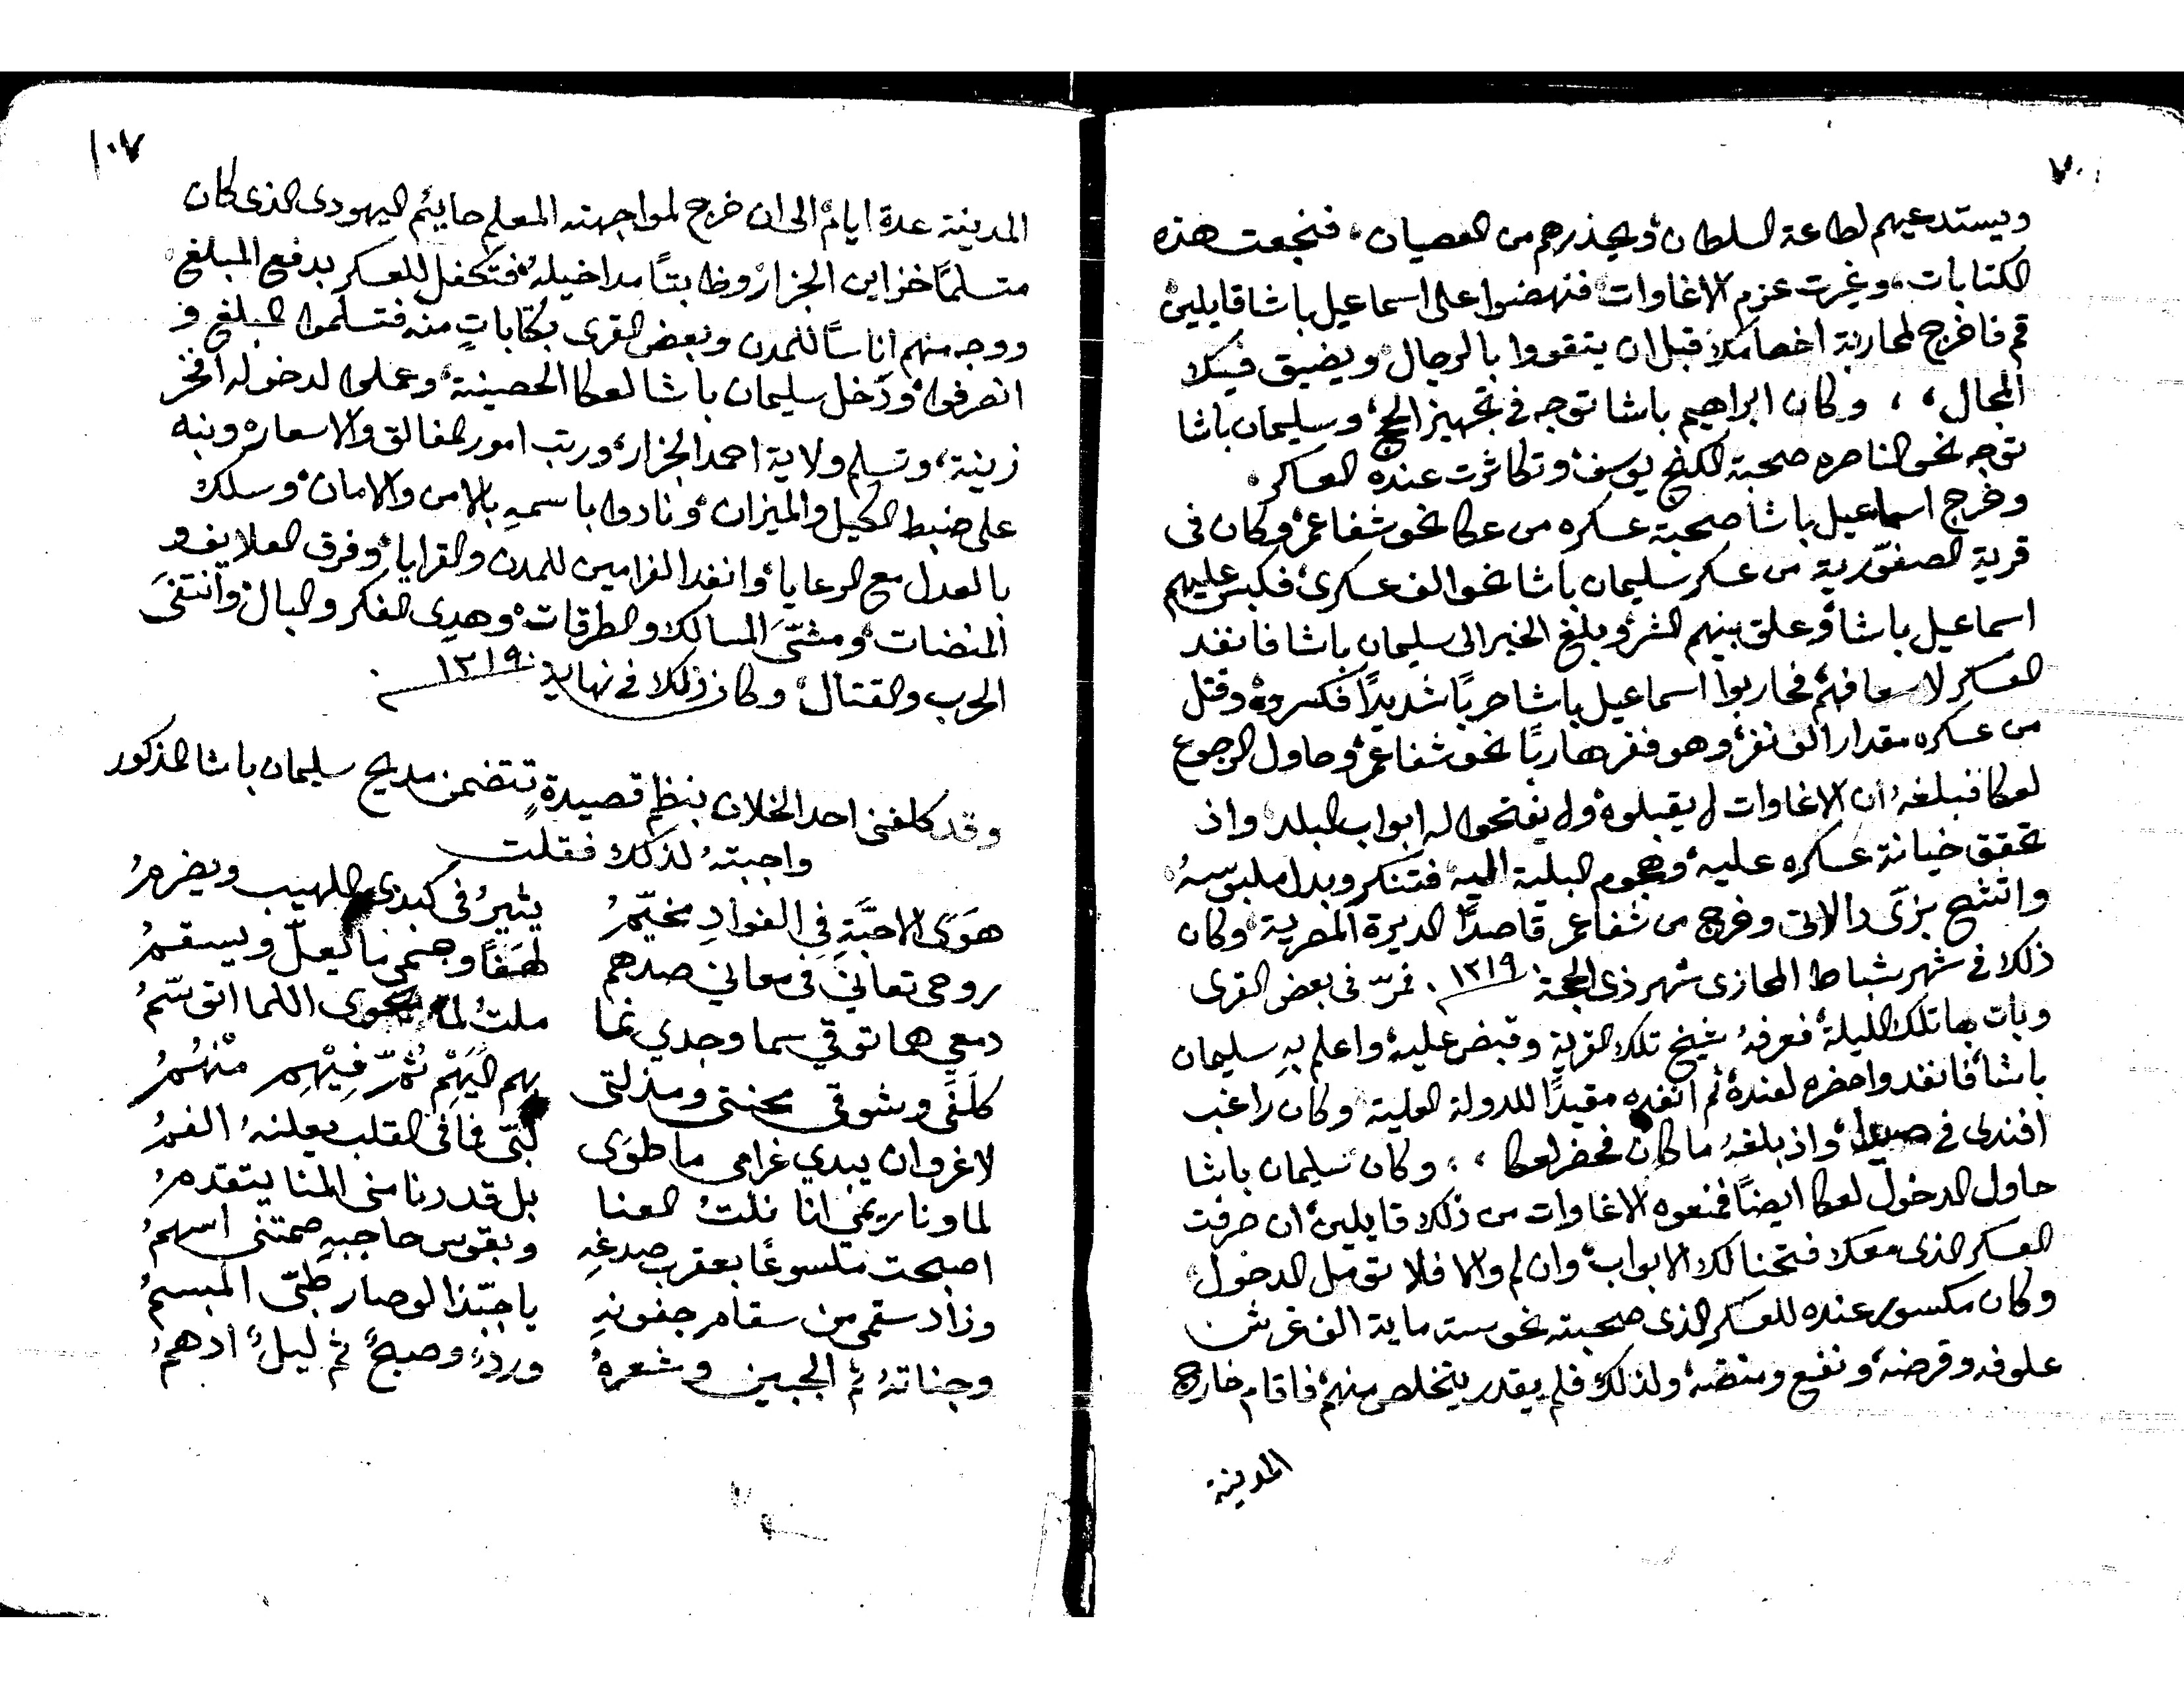 ويستدعيهم لطاعة السلطان ويحذرهم من العصيان، فنجعت هذه
الكتابات، وغيرت عزم الاغاوات فنهضوا على اسماعيل باشا قايلين
قم فاخرج لمحاربة اخصامك قبل ان يتقووا بالرجال ويضيق فيك
المجال، ، وكان ابراهيم باشا توجه في تجهيز الحج، وسليمان باشا
توجه نحو الناصره صحبة الكنج يوسف، وتكاثرت عنده العساكر،
وخرج اسماعيل باشا صحبة عسكره من عكا نحو شفاعمر، وكان في
قرية الصفوّرية من عسكر سليمان باشا نحو الف عسكري، فكبس عليهم
اسماعيل باشا، وعلق بينهم الشر، وبلغ الخبر الى سليمان باشا فانفد
العسكر لاسعافهم، فحاربوا اسماعيل باشا حربًا شديدًا فكسروه، وقتل
من عسكره مقدار الف نفر، وهو ففر هاربًا نحو شفاعمر، وحاول الرجوع
لعكا فبلغه ان الاغاوات لم يقبلوه ولم يفتحوا له ابواب البلد، واذ
تحقق خيانة عسكره عليه، وهجوم البلية اليه فتنكر وبدل ملبوسهُ،
واتشح بزيّ دالاتي وخرج من شفاعمر قاصدًا الديرة المصرية، وكان
ذلك في شهر شباط المحازى شهر ذي الحجة ١٢١٩، فمرّ في بعض القرى
وبات بها تلك الليلة، فعرفهُ شيخ تلك القرية وقبض عليه، واعلم بهِ سليمان
باشا، فانفد واحضره لعنده ثم انفده مقيدًا للدولة العلية، وكان راغب
افندي في صيدا، واذ بلغهُ ما كان فحضر لعكا ، ، وكان سليمان باشا
حاول الدخول لعكا ايضًا فمنعوه الاغاوات من ذلك قايلين، ان صرفت
العسكر الذي معك فتحنا لك الابواب، وان لم والا فلا تومل الدخول،
وكان مكسور عنده للعسكر الذي صحبته نحو ستماية الف غرش
علوفه وقرضه، ونفع ومنقضه، ولذلك فلم يقدر يتخلص منهم، فاقام خارج
المدينة
١٠٧
المدينة عدة ايام، الى ان خرج لمواجهته المعلم حاييم اليهودي الذي كان
متسلمًا خزاين الجزار، وظابتًا مداخيله، فتكفل للعسكر بدفع المبلغ
ووجه منهم اناسًا للمدن وبعض القرى بكتاباتٍ منه فتسلموا المبلغ و
انصرفوا، ودخل سليمان باشا لعكا الحصينة، وعملوا لدخوله افخر
زينة، وتسلم ولاية احمد الجزار، ورتب امور المغالق والاسعار، ونبه
على ضبط الكيل والميزان، ونادوا باسمهِ بالامن والامان، وسلك
بالعدل مع الرعايا، وانفد الفرامين للمدن والقرايا، وفرق العلايف و
المنضات، ومشّى المسالك والطرقات، وهدي الفكر والبال، وانتفىَ
الحرب والقتال، وكان ذلك في نهاية ١٢١٩
وقد كلفني احد الخلان بنظم قصيدةٍ تتضمن مديح سليمان باشا المذكور
واجبتهُ لذلك فقلت
هوَى الاحبَّةِ في الفوادِ مخيّمُ يثيرُ في كبدي اللهيب ويضرمُ
روحي تعاني في معاني صدهم لهفًا وجسمي ما يعلّ ويسقمُ
دمعي هما توقي سما وجدي نما ملتُ لما يحوى اللما اتوسّمُ
كلَفَي وشوقي محنتي ومذلتي بهم اليَهِمْ ثمّ فيْهِم منْهُمُ
لاغرو ان يبدي غرامي ما طوَى لبّي فما في القلب يعلنهُ الفمُ
لما ونا ريمي انا نلتُ العنا بل قد دنا مني المنا يتقدمُ
اصبحت ملسوعًا بعقرب صدغهِ وبقوس حاجبهِ صمتني اسهمُ
وزاد سقمي من سقام جفونهِ يا حبّذا لو صار طبّي المبسمُ
وجناتهُ ثم الجبين وشعرهُ وردٌ وصبحٌ ثم ليلٌ ادهمُ